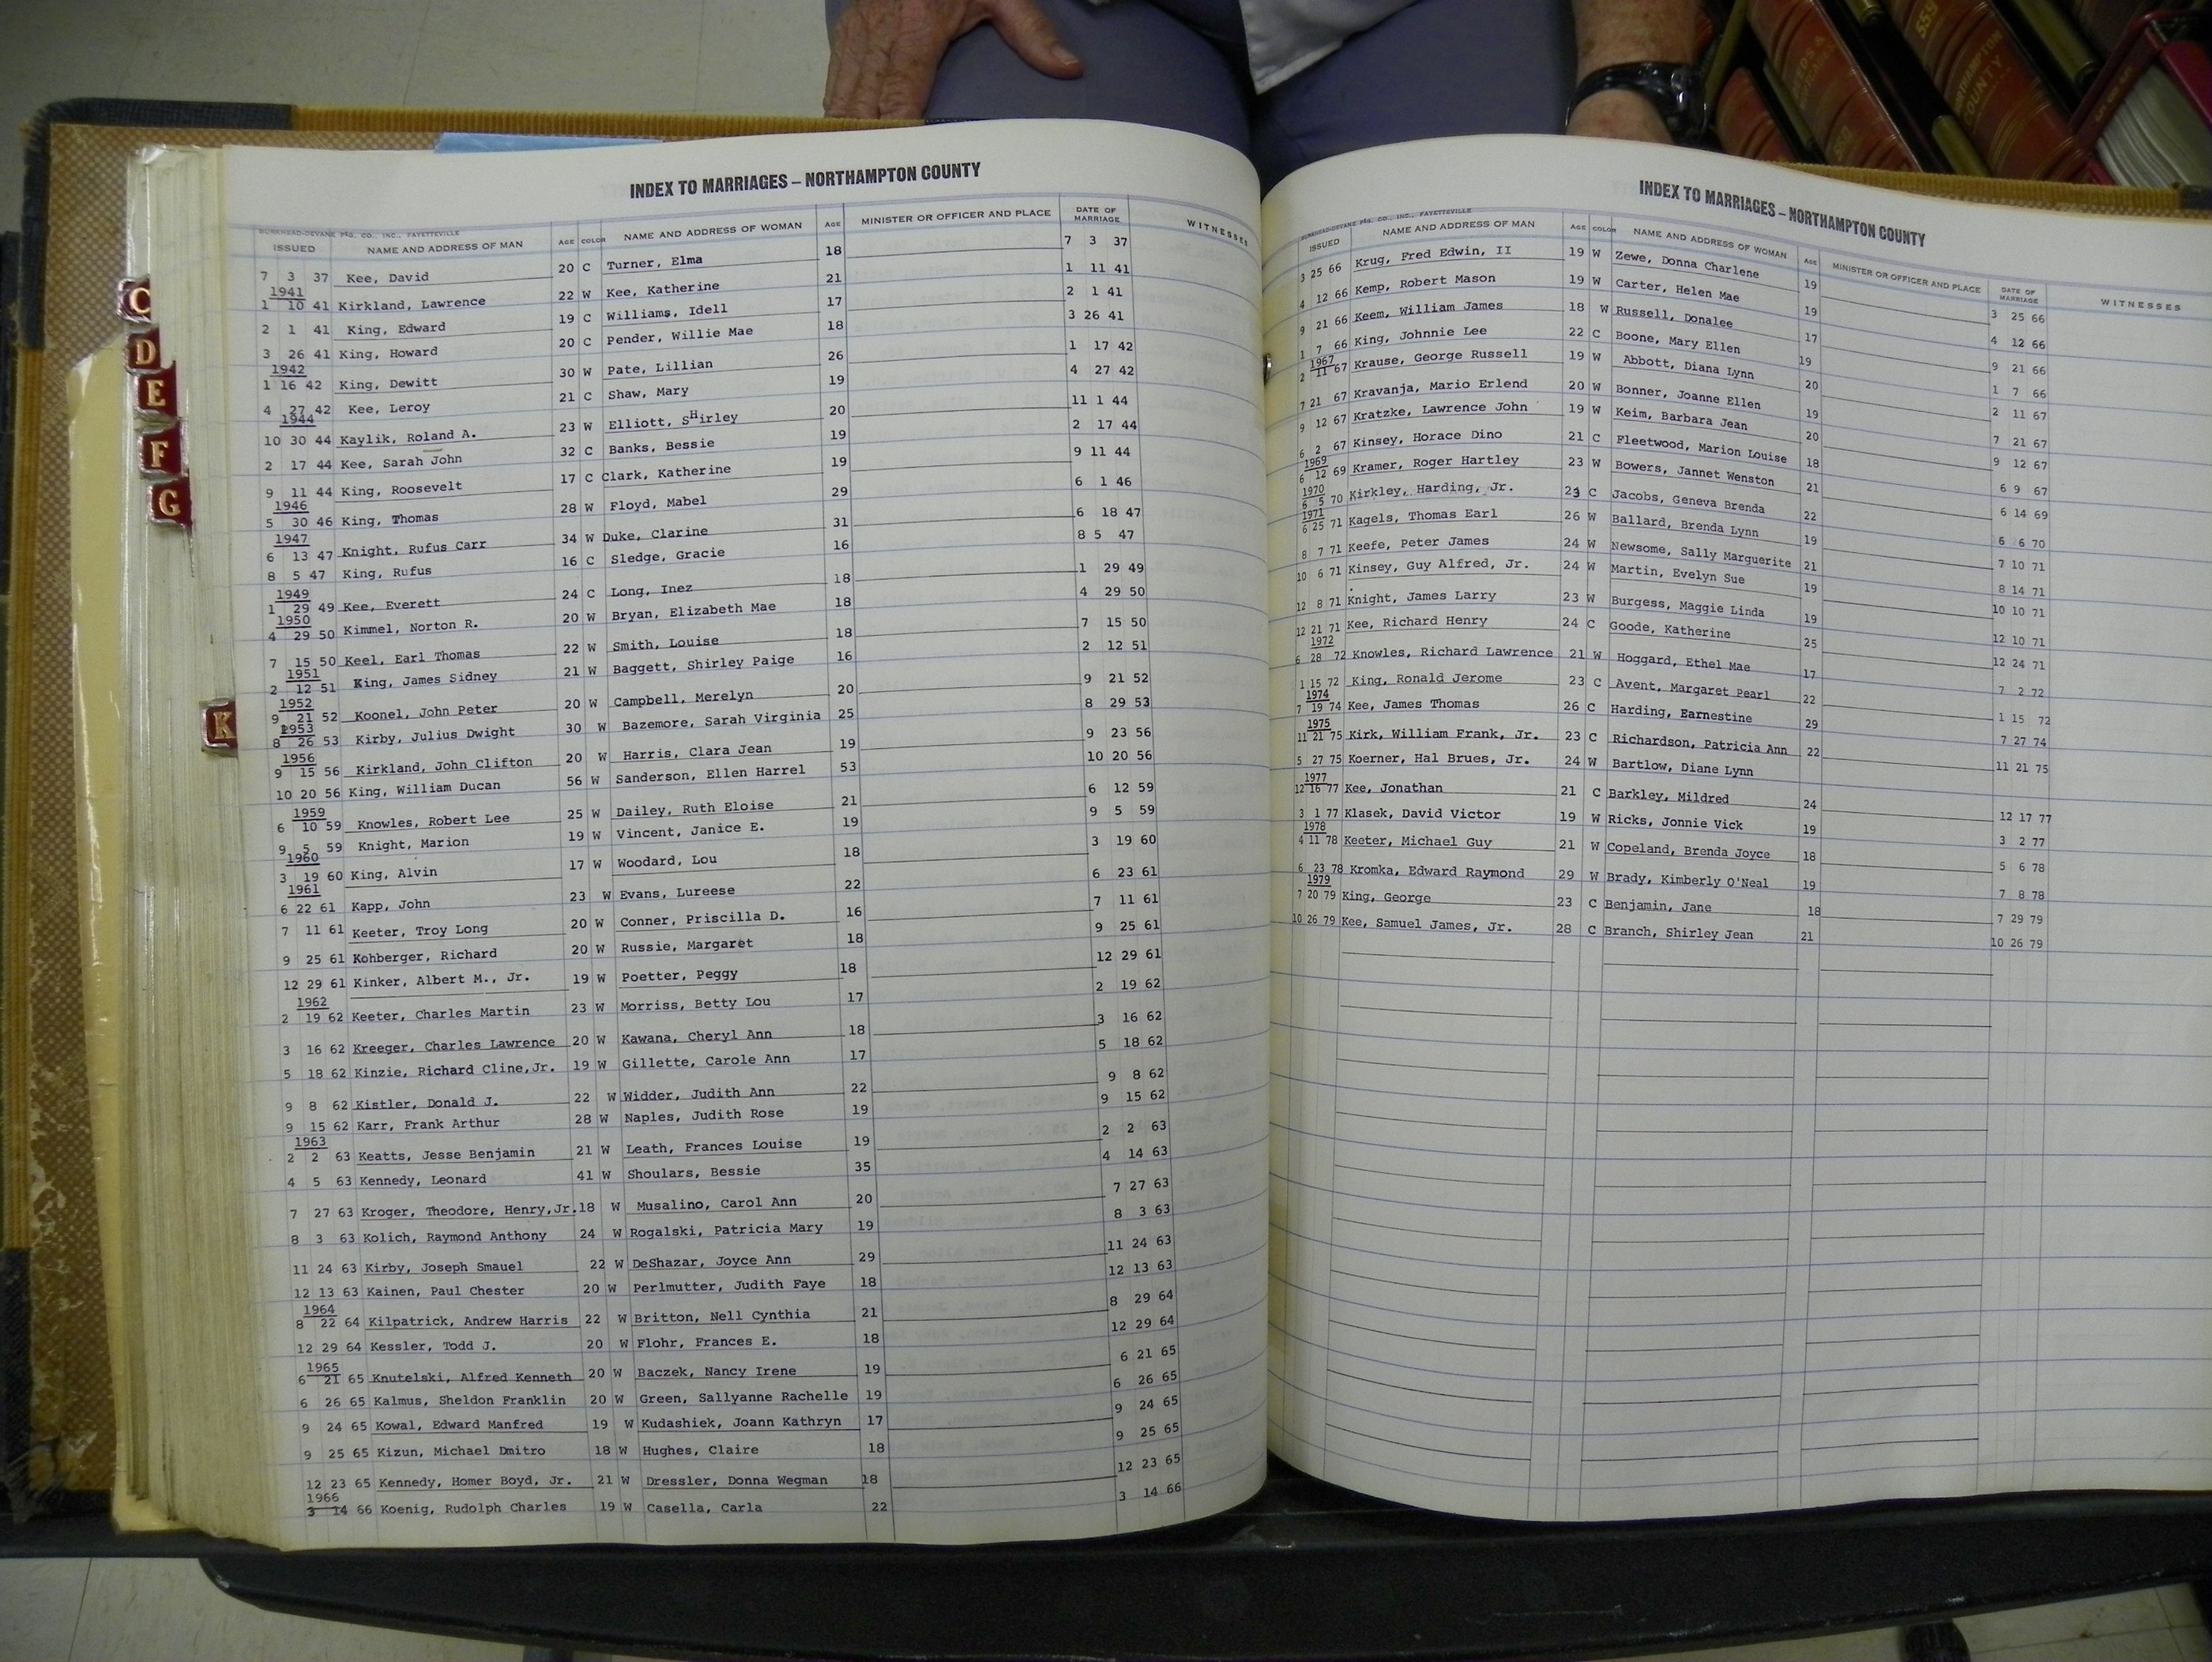 INDEX TO MARRIAGES – NORTHAMPTON COUNTY
BURKHEAD-DEVANE P'T'G. CO., INC., FAYETTEVILLE
ISSUED NAME AND ADDRESS OF MAN AGE COLOR NAME AND ADDRESS OF WOMAN AGE MINISTER OR OFFICER AND PLACE DATE OF MARRIAGE WITNESSES
7 3 37 Kee, David 20 C Turner, Elma 18 7 3 37
1941
1 10 41 Kirkland, Lawrence 22 W Kee, Katherine 21 1 11 41
2 1 41 King, Edward 19 C Williams, Idell 17 2 1 41
3 26 41 King, Howard 20 C Pender, Willie Mae 18 3 26 41
1942
1 16 42 King, Dewitt 30 W Pate, Lillian 26 1 17 42
4 27 42 Kee, Leroy 21 C Shaw, Mary 19 4 27 42
1944
10 30 44 Kaylik, Roland A. 23 W Elliott, SHirley 20 11 1 44
2 17 44 Kee, Sarah John 32 C Banks, Bessie 19 2 17 44
9 11 44 King, Roosevelt 17 C Clark, Katherine 19 9 11 44
1946
5 30 46 King, Thomas 28 W Floyd, Mabel 29 6 1 46
1947
6 13 47 Knight, Rufus Carr 34 W Duke, Clarine 31 6 18 47
8 5 47 King, Rufus 16 C Sledge, Gracie 16 8 5 47
1949
1 29 49 Kee, Everett 24 C Long, Inez 18 1 29 49
1950
4 29 50 Kimmel, Norton R. 20 W Bryan, Elizabeth Mae 18 4 29 50
7 15 50 Keel, Earl Thomas 22 W Smith, Louise 18 7 15 50
1951
2 12 51 King, James Sidney 21 W Baggett, Shirley Paige 16 2 12 51
1952
9 21 52 Koonel, John Peter 20 W Campbell, Merelyn 20 9 21 52
1953
8 26 53 Kirby, Julius Dwight 30 W Bazemore, Sarah Virginia 25 8 29 53
1956
9 15 56 Kirkland, John Clifton 20 W Harris, Clara Jean 19 9 23 56
10 20 56 King, William Ducan 56 W Sanderson, Ellen Harrel 53 10 20 56
1959
6 10 59 Knowles, Robert Lee 25 W Dailey, Ruth Eloise 21 6 12 59
9 5 59 Knight, Marion 19 W Vincent, Janice E. 19 9 5 59
1960
3 19 60 King, Alvin 17 W Woodard, Lou 18 3 19 60
1961
6 22 61 Kapp, John 23 W Evans, Lureese 22 6 23 61
7 11 61 Keeter, Troy Long 20 W Conner, Priscilla D. 16 7 11 61
9 25 61 Kohberger, Richard 20 W Russie, Margaret 18 9 25 61
12 29 61 Kinker, Albert M., Jr. 19 W Poetter, Peggy 18 12 29 61
1962
2 19 62 Keeter, Charles Martin 23 W Morriss, Betty Lou 17 2 19 62
3 16 62 Kreeger, Charles Lawrence 20 W Kawana, Cheryl Ann 18 3 16 62
5 18 62 Kinzie, Richard Cline,Jr. 19 W Gillette, Carole Ann 17 5 18 62
9 8 62 Kistler, Donald J. 22 W Widder, Judith Ann 22 9 8 62
9 15 62 Karr, Frank Arthur 28 W Naples, Judith Rose 19 9 15 62
1963
2 2 63 Keatts, Jesse Benjamin 21 W Leath, Frances Louise 19 2 2 63
4 5 63 Kennedy, Leonard 41 W Shoulars, Bessie 35 4 14 63
7 27 63 Kroger, Theodore, Henry,Jr. 18 W Musalino, Carol Ann 20 7 27 63
8 3 63 Kolich, Raymond Anthony 24 W Rogalski, Patricia Mary 19 8 3 63
11 24 63 Kirby, Joseph Smauel 22 W DeShazar, Joyce Ann 29 11 24 63
12 13 63 Kainen, Paul Chester 20 W Perlmutter, Judith Faye 18 12 13 63
1964
8 22 64 Kilpatrick, Andrew Harris 22 W Britton, Nell Cynthia 21 8 29 64
12 29 64 Kessler, Todd J. 20 W Flohr, Frances E. 18 12 29 64
1965
6 21 65 Knutelski, Alfred Kenneth 20 W Baczek, Nancy Irene 19 6 21 65
6 26 65 Kalmus, Sheldon Franklin 20 W Green, Sallyanne Rachelle 19 6 26 65
9 24 65 Kowal, Edward Manfred 19 W Kudashiek, Joann Kathryn 17 9 24 65
9 25 65 Kizun, Michael Dmitro 18 W Hughes, Claire 18 9 25 65
12 23 65 Kennedy, Homer Boyd, Jr. 21 W Dressler, Donna Wegman 18 12 23 65
1966
3 14 66 Koenig, Rudolph Charles 19 W Casella, Carla 22 3 14 66
C
D
E
F
G
K
INDEX TO MARRIAGES – NORTHAMPTON COUNTY
BURKHEAD-DEVANE P'T'G. CO., INC., FAYETTEVILLE
ISSUED NAME AND ADDRESS OF MAN AGE COLOR NAME AND ADDRESS OF WOMAN AGE MINISTER OR OFFICER AND PLACE DATE OF MARRIAGE WITNESSES
3 25 66 Krug, Fred Edwin, II 19 W Zewe, Donna Charlene 19 3 25 66
4 12 66 Kemp, Robert Mason 19 W Carter, Helen Mae 19 4 12 66
9 21 66 Keem, William James 18 W Russell, Donalee 17 9 21 66
1 7 66 King, Johnnie Lee 22 C Boone, Mary Ellen 19 1 7 66
1967
2 11 67 Krause, George Russell 19 W Abbott, Diana Lynn 20 2 11 67
7 21 67 Kravanja, Mario Erlend 20 W Bonner, Joanne Ellen 19 7 21 67
9 12 67 Kratzke, Lawrence John 19 W Keim, Barbara Jean 20 9 12 67
6 2 67 Kinsey, Horace Dino 21 C Fleetwood, Marion Louise 18 6 9 67
1969
6 12 69 Kramer, Roger Hartley 23 W Bowers, Jannet Wenston 21 6 14 69
1970
6 5 70 Kirkley, Harding, Jr. 23 C Jacobs, Geneva Brenda 22 6 6 70
1971
6 25 71 Kagels, Thomas Earl 26 W Ballard, Brenda Lynn 19 7 10 71
8 7 71 Keefe, Peter James 24 W Newsome, Sally Marguerite 21 8 14 71
10 6 71 Kinsey, Guy Alfred, Jr. 24 W Martin, Evelyn Sue 19 10 10 71
12 8 71 Knight, James Larry 23 W Burgess, Maggie Linda 19 12 10 71
12 21 71 Kee, Richard Henry 24 C Goode, Katherine 25 12 24 71
1972
6 28 72 Knowles, Richard Lawrence 21 W Hoggard, Ethel Mae 17 7 2 72
1 15 72 King, Ronald Jerome 23 C Avent, Margaret Pearl 22 1 15 72
1974
7 19 74 Kee, James Thomas 26 C Harding, Earnestine 29 7 27 74
1975
11 21 75 Kirk, William Frank, Jr. 23 C Richardson, Patricia Ann 22 11 21 75
5 27 75 Koerner, Hal Brues, Jr. 24 W Bartlow, Diane Lynn
1977
12 16 77 Kee, Jonathan 21 C Barkley, Mildred 24 12 17 77
3 1 77 Klasek, David Victor 19 W Ricks, Jonnie Vick 19 3 2 77
1978
4 11 78 Keeter, Michael Guy 21 W Copeland, Brenda Joyce 18 5 6 78
6 23 78 Kromka, Edward Raymond 29 W Brady, Kimberly O'Neal 19 7 8 78
1979
7 20 79 King, George 23 C Benjamin, Jane 18 7 29 79
10 26 79 Kee, Samuel James, Jr. 28 C Branch, Shirley Jean 21 10 26 79
559
NORTHAMPTON COUNTY